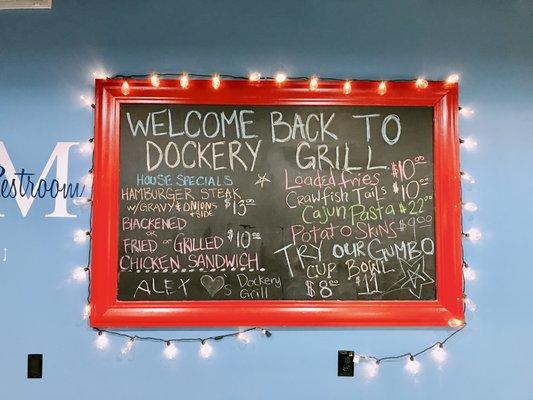 WELCOME BACK TO
DOCKERY GRILL
HOUSE SPECIALS
HAMBURGER STEAK
W/GRAVY & ONION
+ SIDE $13.00
BLACKENED
OR
FRIED OR GRILLED $10.00
CHICKEN SANDWICH
ALEX ♡'s Dockery
Grill
Loaded fries $10.00
Crawfish Tails $10.00
Cajun Pasta $22.00
Potato Skins $9.00
TRY OUR GUMBO
CUP BOWL
$8.00 $11
Restroom
M